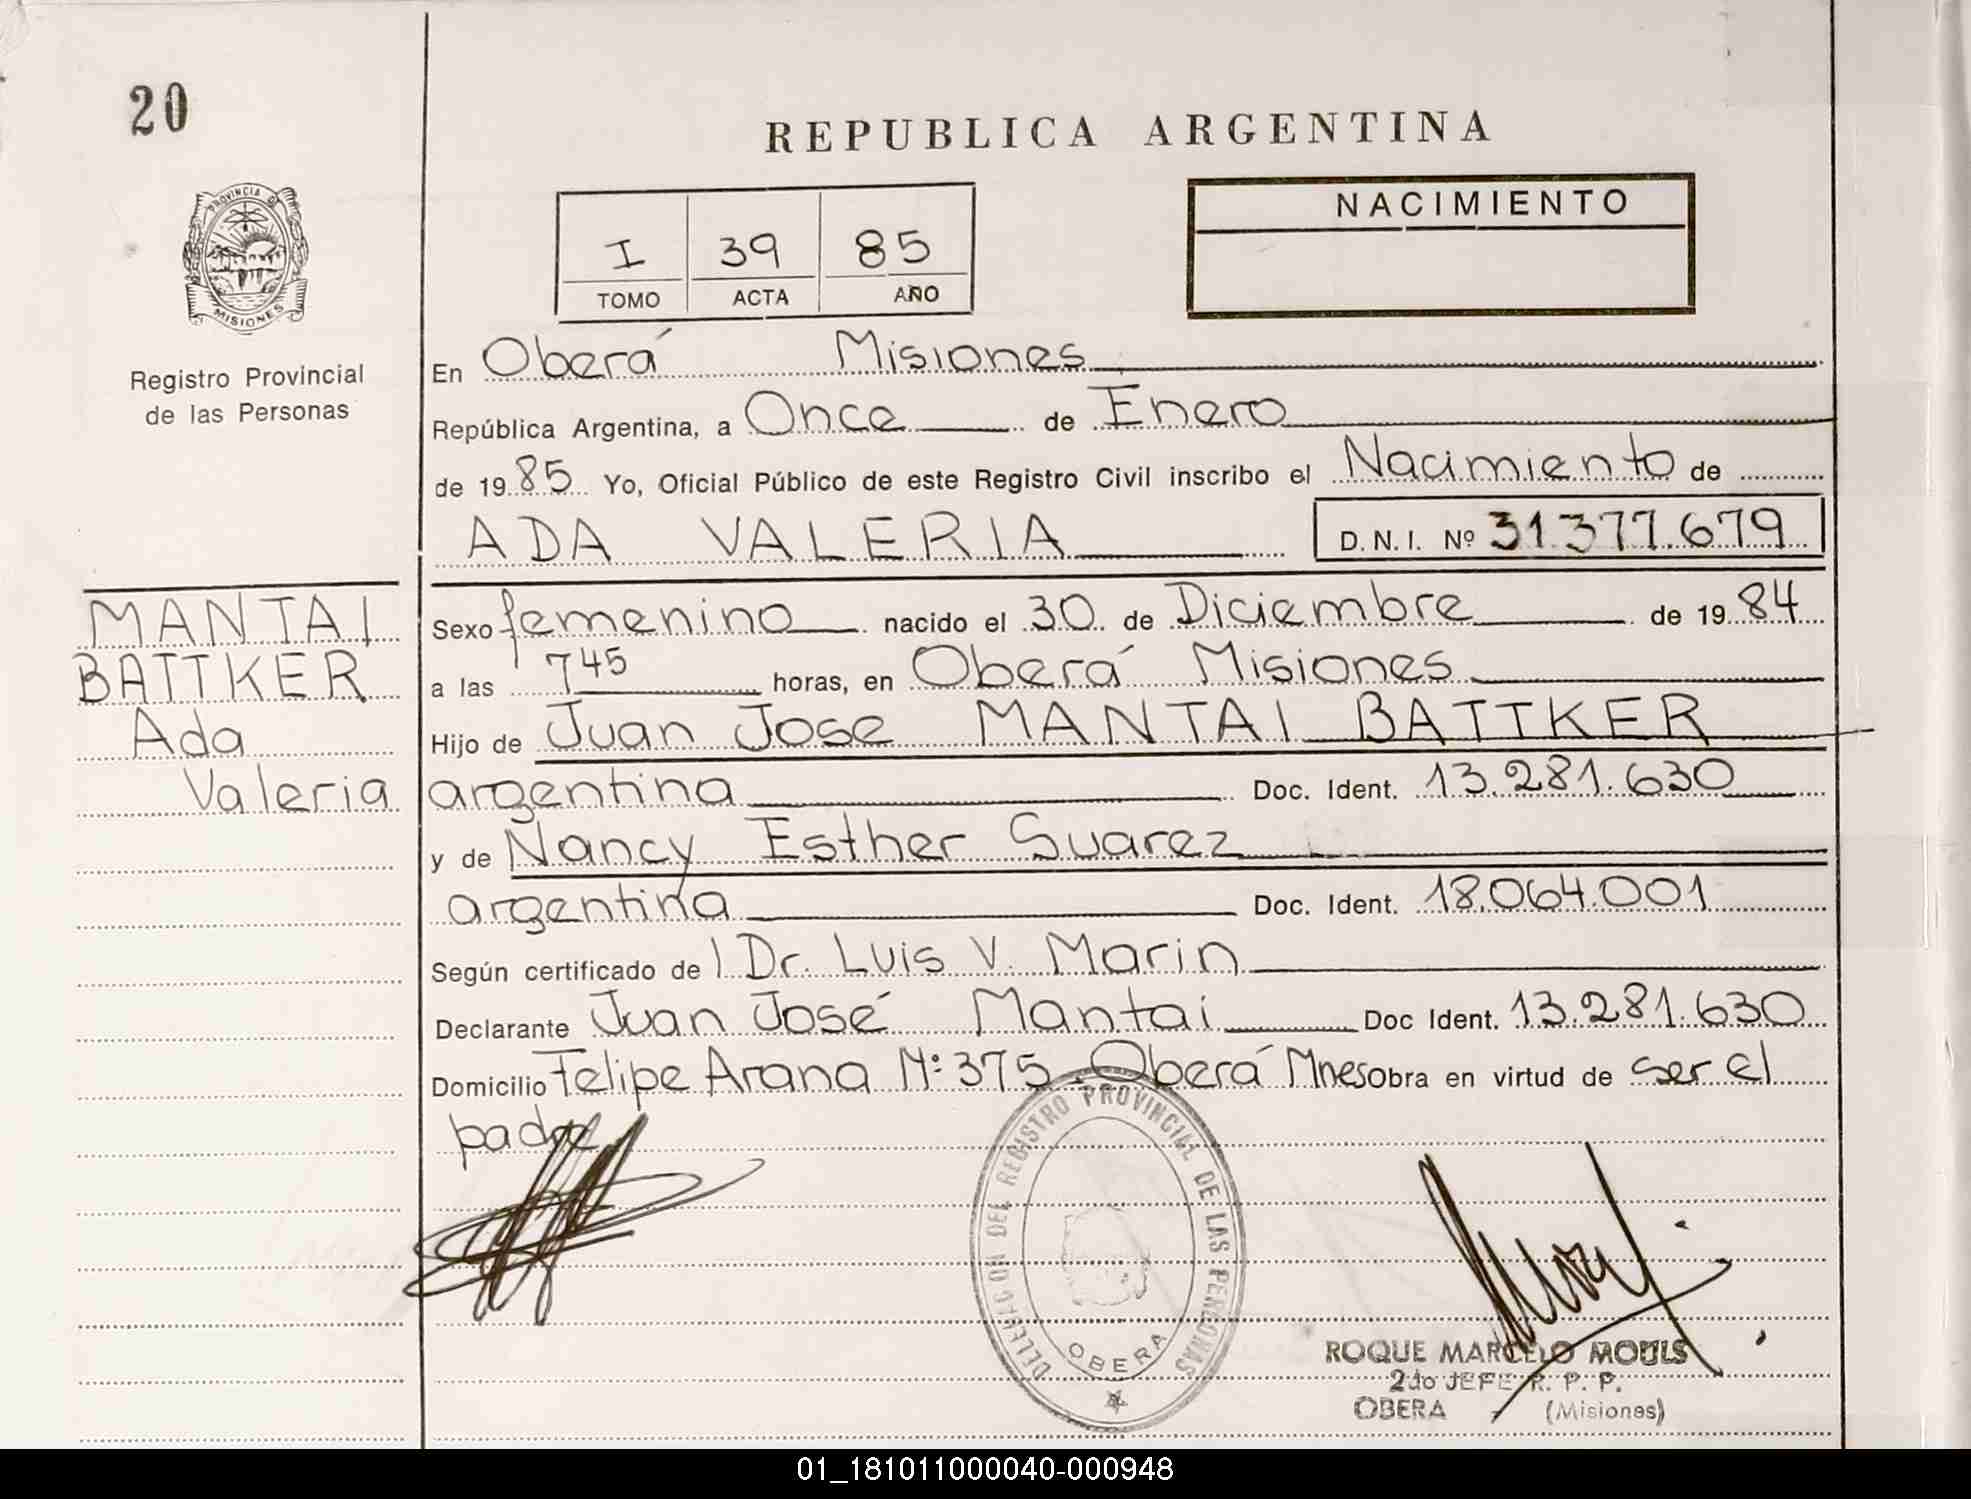 20
REPUBLICA ARGENTINA
PROVINCIA DE
MISIONES
Registro Provincial
de las Personas
I 39 85
TOMO ACTA AÑO
NACIMIENTO
En Oberá Misiones
República Argentina, a Once de Enero
de 1985 Yo, Oficial Público de este Registro Civil inscribo el Nacimiento de
ADA VALERIA D.N.I. Nº 31.377.679
MANTAI
BATTKER
Ada
Valeria
Sexo femenino nacido el 30 de Diciembre de 1984
a las 745 horas, en Oberá Misiones
Hijo de Juan Jose MANTAI BATTKER
argentina Doc. Ident. 13.281.630
y de Nancy Esther Suarez
argentina Doc. Ident. 18.064.001
Según certificado de Dr. Luis V. Marin
Declarante Juan José Mantai Doc Ident. 13.281.630
Domicilio Felipe Arana Nº 375. Oberá Mnes Obra en virtud de ser el
padre
DELEGACION DEL REGISTRO PROVINCIAL DE LAS PERSONAS
OBERA
ROQUE MARCELO MOULS
2do JEFE R. P. P.
OBERA (Misiones)
01_181011000040-000948